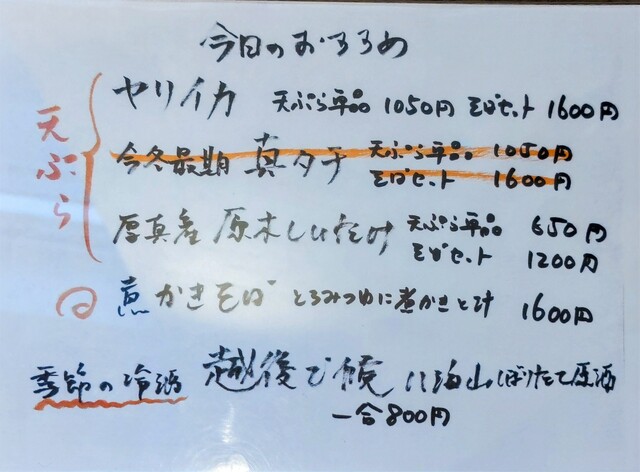 今日のおすすめ
天ぷら
ヤリイカ 天ぷら単品 1050円 そばセット 1600円
今冬最期 真タチ 天ぷら単品 1050円
そばセット 1600円
厚真産 原木しいたけ 天ぷら単品 650円
そばセット 1200円
かきそば とろみつゆに煮かきと汁 1600円
季節の冷酒 越後で候 八海山しぼりたて原酒
一合800円